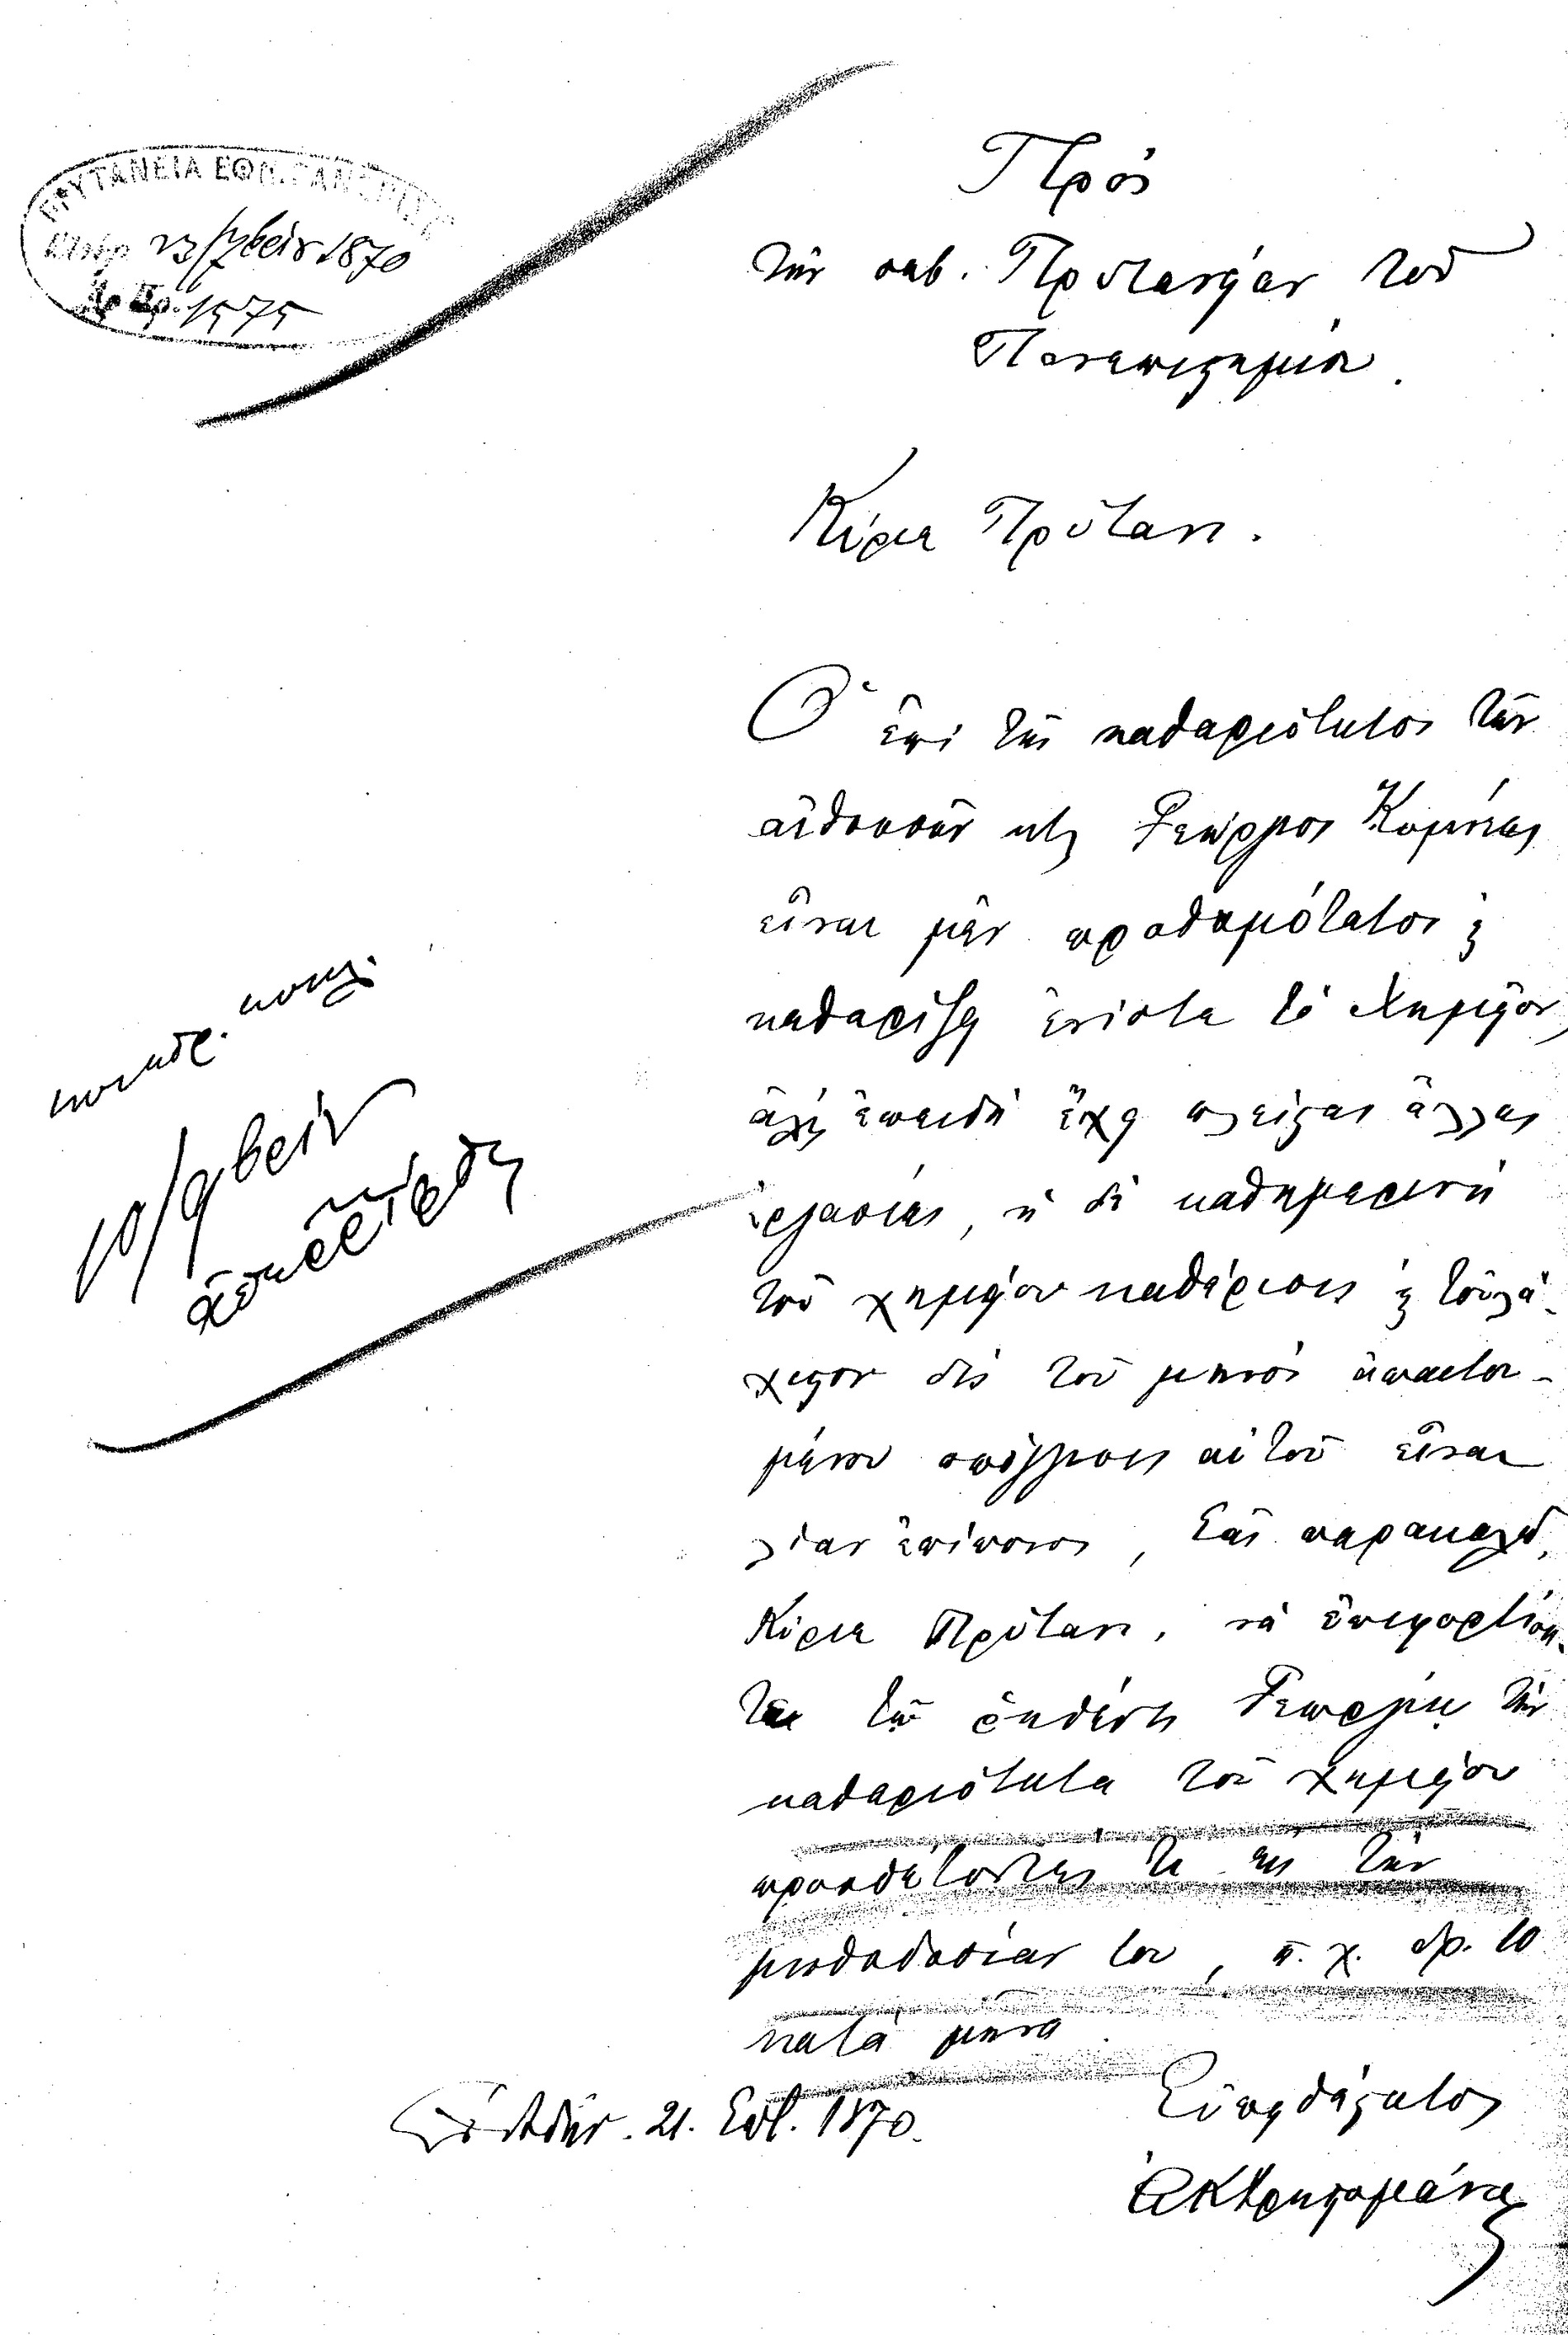 ΠΡΥΤΑΝΕΙΑ ΕΘΝ. ΠΑΝΕΠΙΣΤ.
23/7βρίου 1870
Ἀρ. Πρ. 1575
Πρὸς
τὴν σεβ. Πρυτανείαν τοῦ
Πανεπιστημίου.
Κύριε Πρύτανι.
Ὁ ἐπὶ τῆς καθαριότητος τῶν
αἰθουσῶν κτλ Γεώργιος Κομήτας
εἶναι μὲν προθυμότατος καὶ
καθαρίζει ἐνίοτε τὸ Χημεῖον,
ἀλλ' ἐπειδὴ ἔχει πλείστας ἄλλας
ἐργασίας, ἡ δὲ καθημερινὴ
τοῦ χημείου καθάρισις καὶ τοὐλά-
χιστον δὶς τοῦ μηνὸς ἀπαιτου-
μένου σπόγγισις αὐτοῦ εἶναι
λίαν ἐπίπονος, Σᾶς παρακαλῶ,
Κύριε Πρύτανι, νὰ ἐπιφορτίση-
τε τῷ ῥηθέντι Γεωργίῳ τὴν
καθαριότητα τοῦ χημείου
προσθέτοντές τι εἰς τὴν
μισθοδοσίαν του, π. χ. δρ. 10
κατὰ μῆνα
Ἐν Ἀθήν. 21. Σεπτ. 1870.
Εὐπειθέστατος
Α Κ Χρηστομάνος
10/9βρίου